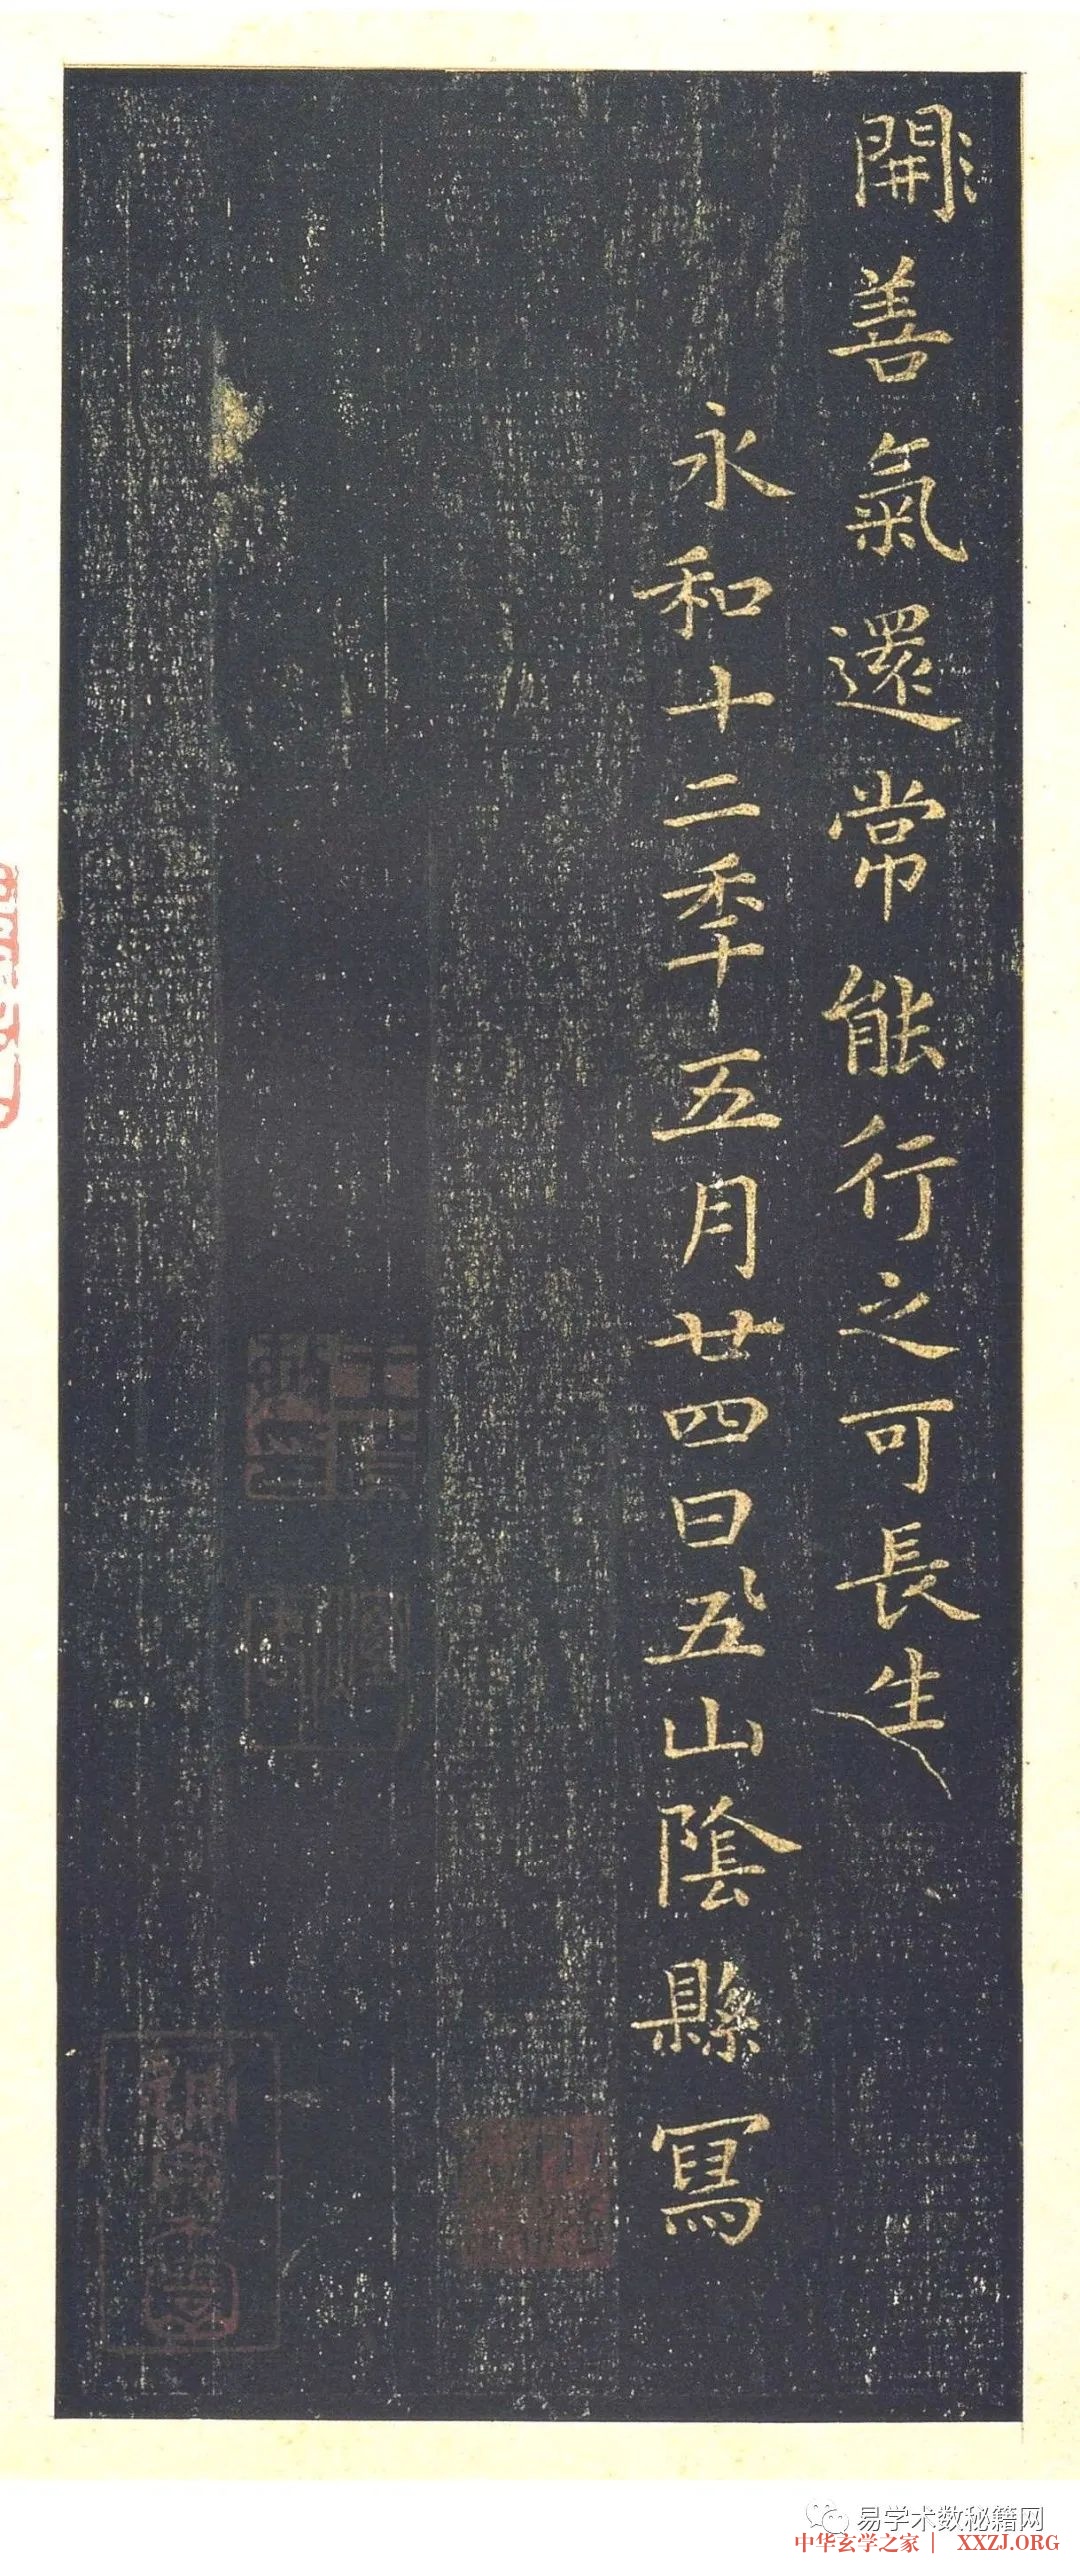 開善氣還常能行之可長生
永和十二秊五月廿四日五山陰縣寫
易学术数秘籍网
中华玄学之家｜ XXZJ.ORG